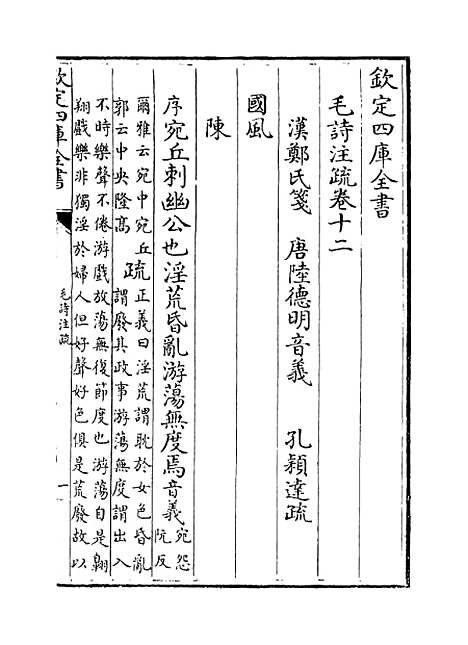 欽定四庫全書
毛詩注疏卷十二
漢鄭氏箋　唐陸德明音義　孔穎達疏
國風
陳
序宛丘刺幽公也淫荒昏亂游蕩無度焉音義宛怨
阮反
爾雅云宛中宛丘
郭云中央隆高
疏
正義曰淫荒謂耽於女色昏亂
謂廢其政事游蕩無度謂出入
不時樂聲不倦游戲放蕩無復節度也游蕩自是翱
翔戲樂非獨淫於婦人但好聲好色俱是荒廢故以
欽定四庫全書
毛詩注疏
一